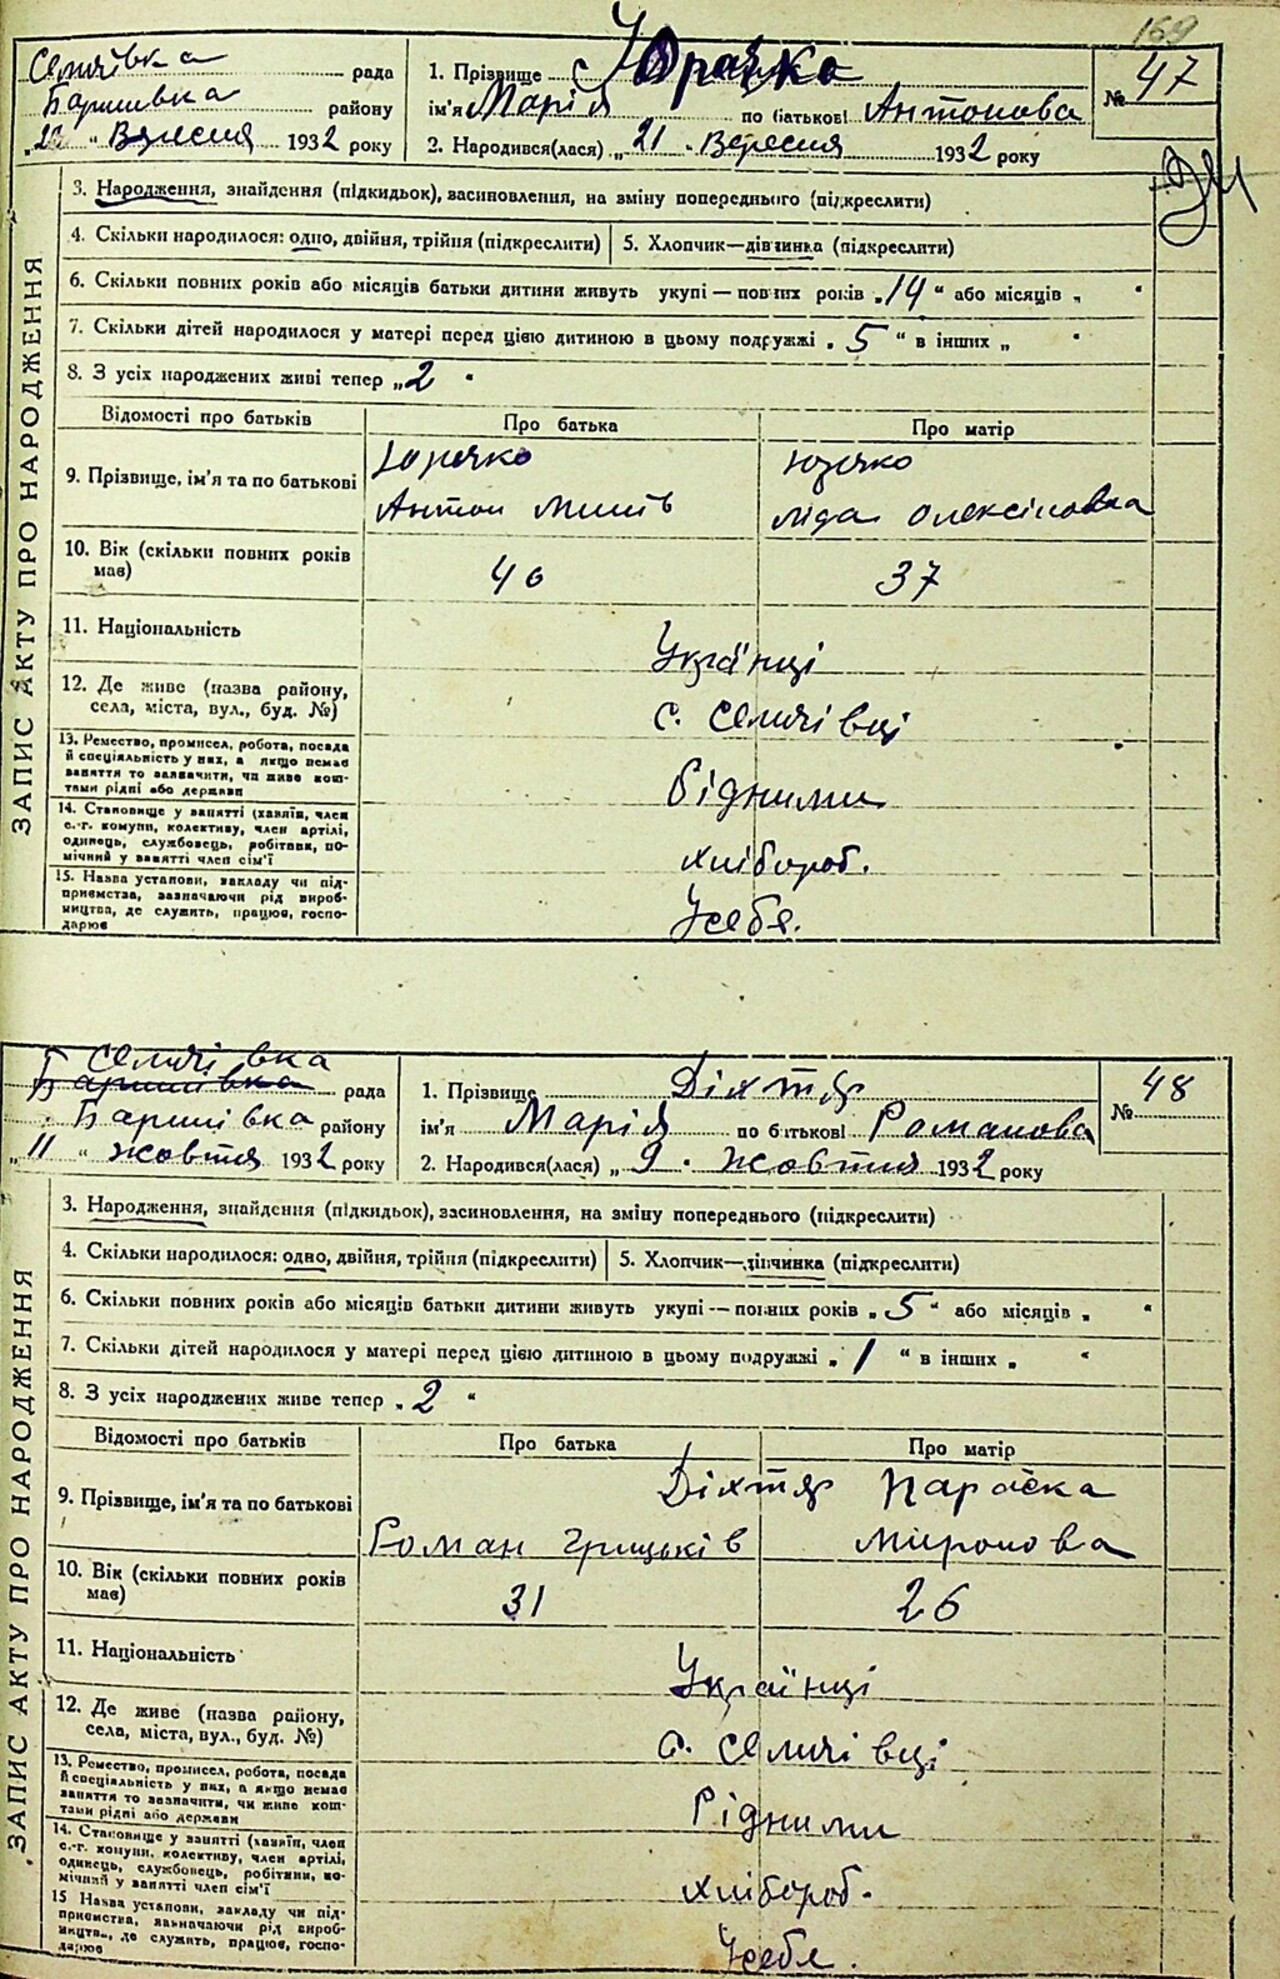 169
Семчівка рада
Баршивка району
„22 “ Вересня 1932 року
1. Прізвище Юрачко
ім'я Марія по батькові Антонова
2. Народився(лася) „ 21 “ Вересня 1932 року
№ 47
ЗАПИС АКТУ ПРО НАРОДЖЕННЯ
3. Народження, знайдення (підкидьок), засиновлення, на зміну попереднього (підкреслити)
4. Скільки народилося: одно, двійня, трійня (підкреслити) 5. Хлопчик—дівчинка (підкреслити)
6. Скільки повних років або місяців батьки дитини живуть укупі — повних років „ 14 “ або місяців „ “
7. Скільки дітей народилося у матері перед цією дитиною в цьому подружжі „ 5 “ в інших „ “
8. З усіх народжених живі тепер „ 2 “
Відомості про батьків Про батька Про матір
9. Прізвище, ім'я та по батькові
Юрачко Юрачко
Антон Ліда Олексіповна
10. Вік (скільки повних років має) 40 37
11. Національність Українці
12. Де живе (назва району, села, міста, вул., буд. №) с. Семчівці
13. Ремество, промисел, робота, посада
й спеціяльність у них, а якщо немає
заняття то зазначити, чи живе кош-
тами рідні або держави
Бідними
14. Становище у занятті (хазяїн, член
с.-г. комуни, колективу, член артілі,
одинець, службовець, робітник, по-
мічний у занятті член сім'ї
хлібороб.
15. Назва установи, закладу чи під-
приємства, зазначаючи рід вироб-
ництва, де служить, працює, госпо-
дарює
Усебе.
Семчівка
Баришівка рада
Баршівка району
„ 11 “ жовтня 1932 року
1. Прізвище Діхтяр
ім'я Марія по батькові Романова
2. Народився(лася) „ 9 “ жовтня 1932 року
№ 48
ЗАПИС АКТУ ПРО НАРОДЖЕННЯ
3. Народження, знайдення (підкидьок), засиновлення, на зміну попереднього (підкреслити)
4. Скільки народилося: одно, двійня, трійня (підкреслити) 5. Хлопчик—дівчинка (підкреслити)
6. Скільки повних років або місяців батьки дитини живуть укупі — повних років „ 5 “ або місяців „ “
7. Скільки дітей народилося у матері перед цією дитиною в цьому подружжі „ 1 “ в інших „ “
8. З усіх народжених живе тепер „ 2 “
Відомості про батьків Про батька Про матір
9. Прізвище, ім'я та по батькові
Діхтяр Параска
Роман Грицьків Миронова
10. Вік (скільки повних років має) 31 26
11. Національність Українці
12. Де живе (назва району, села, міста, вул., буд. №) с. Семчівці
13. Ремество, промисел, робота, посада
й спеціяльність у них, а якщо немає
заняття то зазначити, чи живе кош-
тами рідні або держави
Рідними
14. Становище у занятті (хазяїн, член
с.-г. комуни, колективу, член артілі,
одинець, службовець, робітник, по-
мічний у занятті член сім'ї
хлібороб.
15 Назва установи, закладу чи під-
приємства, зазначаючи рід вироб-
ництва, де служить, працює, госпо-
дарює
Усебе.